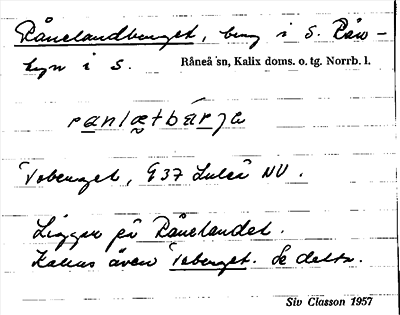 Rånelandberget, berg i S. Rån-
byn i S. Råneå sn, Kalix doms. o. tg. Norrb. l.
ranlætbárja
Toberget, 937 Luleå NV.
Ligger på Rånelandet.
Kallas även Toberget. Se detta.
Siv Classon 1957